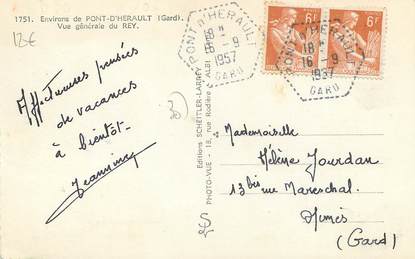 1751. Environs de PONT-D'HERAULT (Gard).
Vue générale du REY.
12€
Affectueuses pensées
de vacances
à bientôt-
30
2€
Editions SCHETTLER-LARREY
PHOTO-VUE - 18, rue Rodière - ALBI
PONT D'HERAULT
18 H
16-9
1957
GARD
6F
6F
PONT D'HERAULT
18 H
16-9
1957
GARD
Mademoiselle
Hélène Jourdan
13 bis rue Mareschal
Nîmes
(Gard)